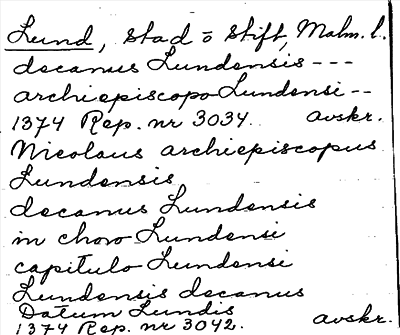 Lund, stad o stift, Malm. l.
decanus Lundensis ---
archiepiscopo Lundensi --
1374 Rep. nr 3034. avskr.
Nicolaus archiepiscopus
Lundensis
decanus Lundensis
in choro Lundensi
capitulo Lundensi
Lundensis decanus
Datum Lundis
1374 Rep. nr 3042. avskr.